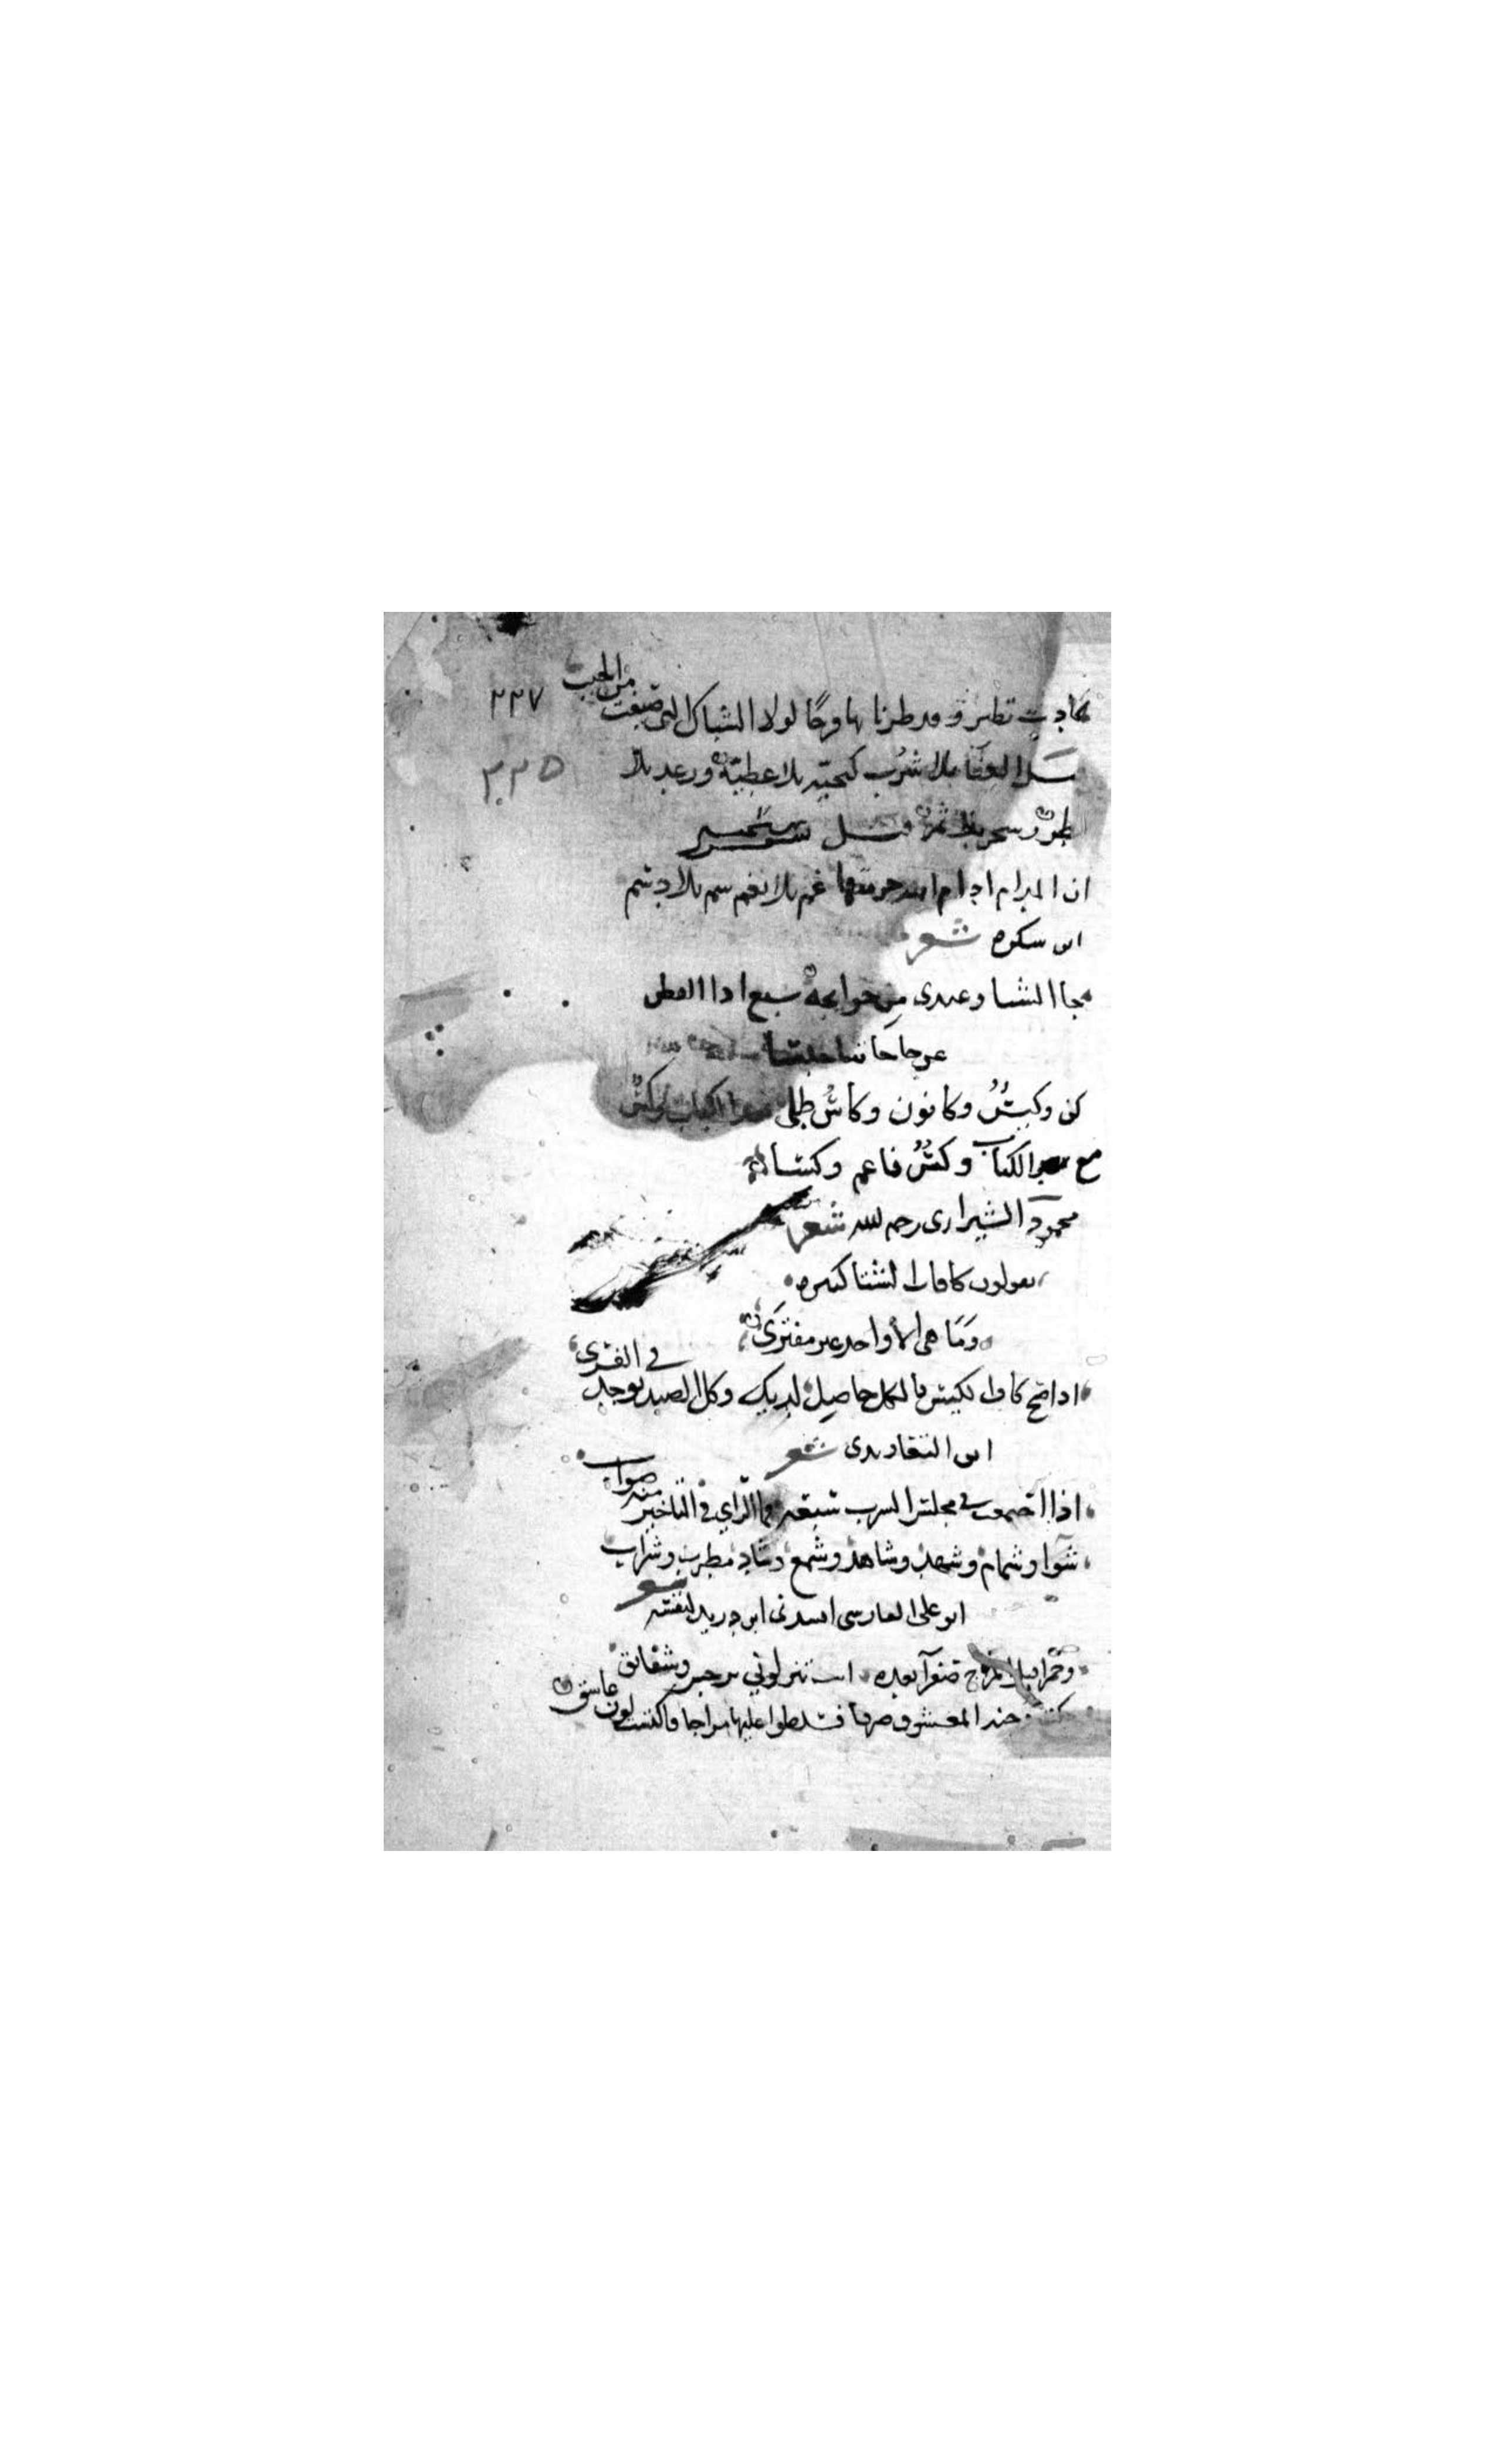 كادت تطير وقد طرنا بها فرحًا لولا الشباك التي صيغت من الحبب
٢٣٧
مثل الغنا بلا شرب كتحية بلا عطية ورعد بلا
٢٣٥
مطر وشجر بلا ثمر
ان المدام ادام الله حرمتها غم بلا نغم سم بلا دسم
ابن سكره شعر
جا الشتا وعندي من حوايجه سبع اذا القطر
عن حاجاتنا حبسا
كن وكيس وكانون وكاس طلى الكباب وكس
مع الكباب وكس ناعم وكسا
محمود الشيرازي رحمه الله شعر
يقولون كافات الشتا كثيرة
وما هي الا واحد غير مفترى
اذا صح كاف الكيس فالكل حاصل لديك وكل الصيد يوجد في الفرى
ابن التعاويذي شعر
اذا اجتمعت في مجلس الشرب سبعة فما الراي في التاخير عنه صواب
شوا وشمام وشهد وشاهد وشمع وشاد مطرب وشراب
ابو علي الفارسي انشدني ابن دريد لنفسه شعر
وحمرا قبل المزج صفرا بعده اتت بين لوني نرجس وشقايق
حكت خد المعشوق صرفا فسلطوا عليها مزاجا فاكتست لون عاشق